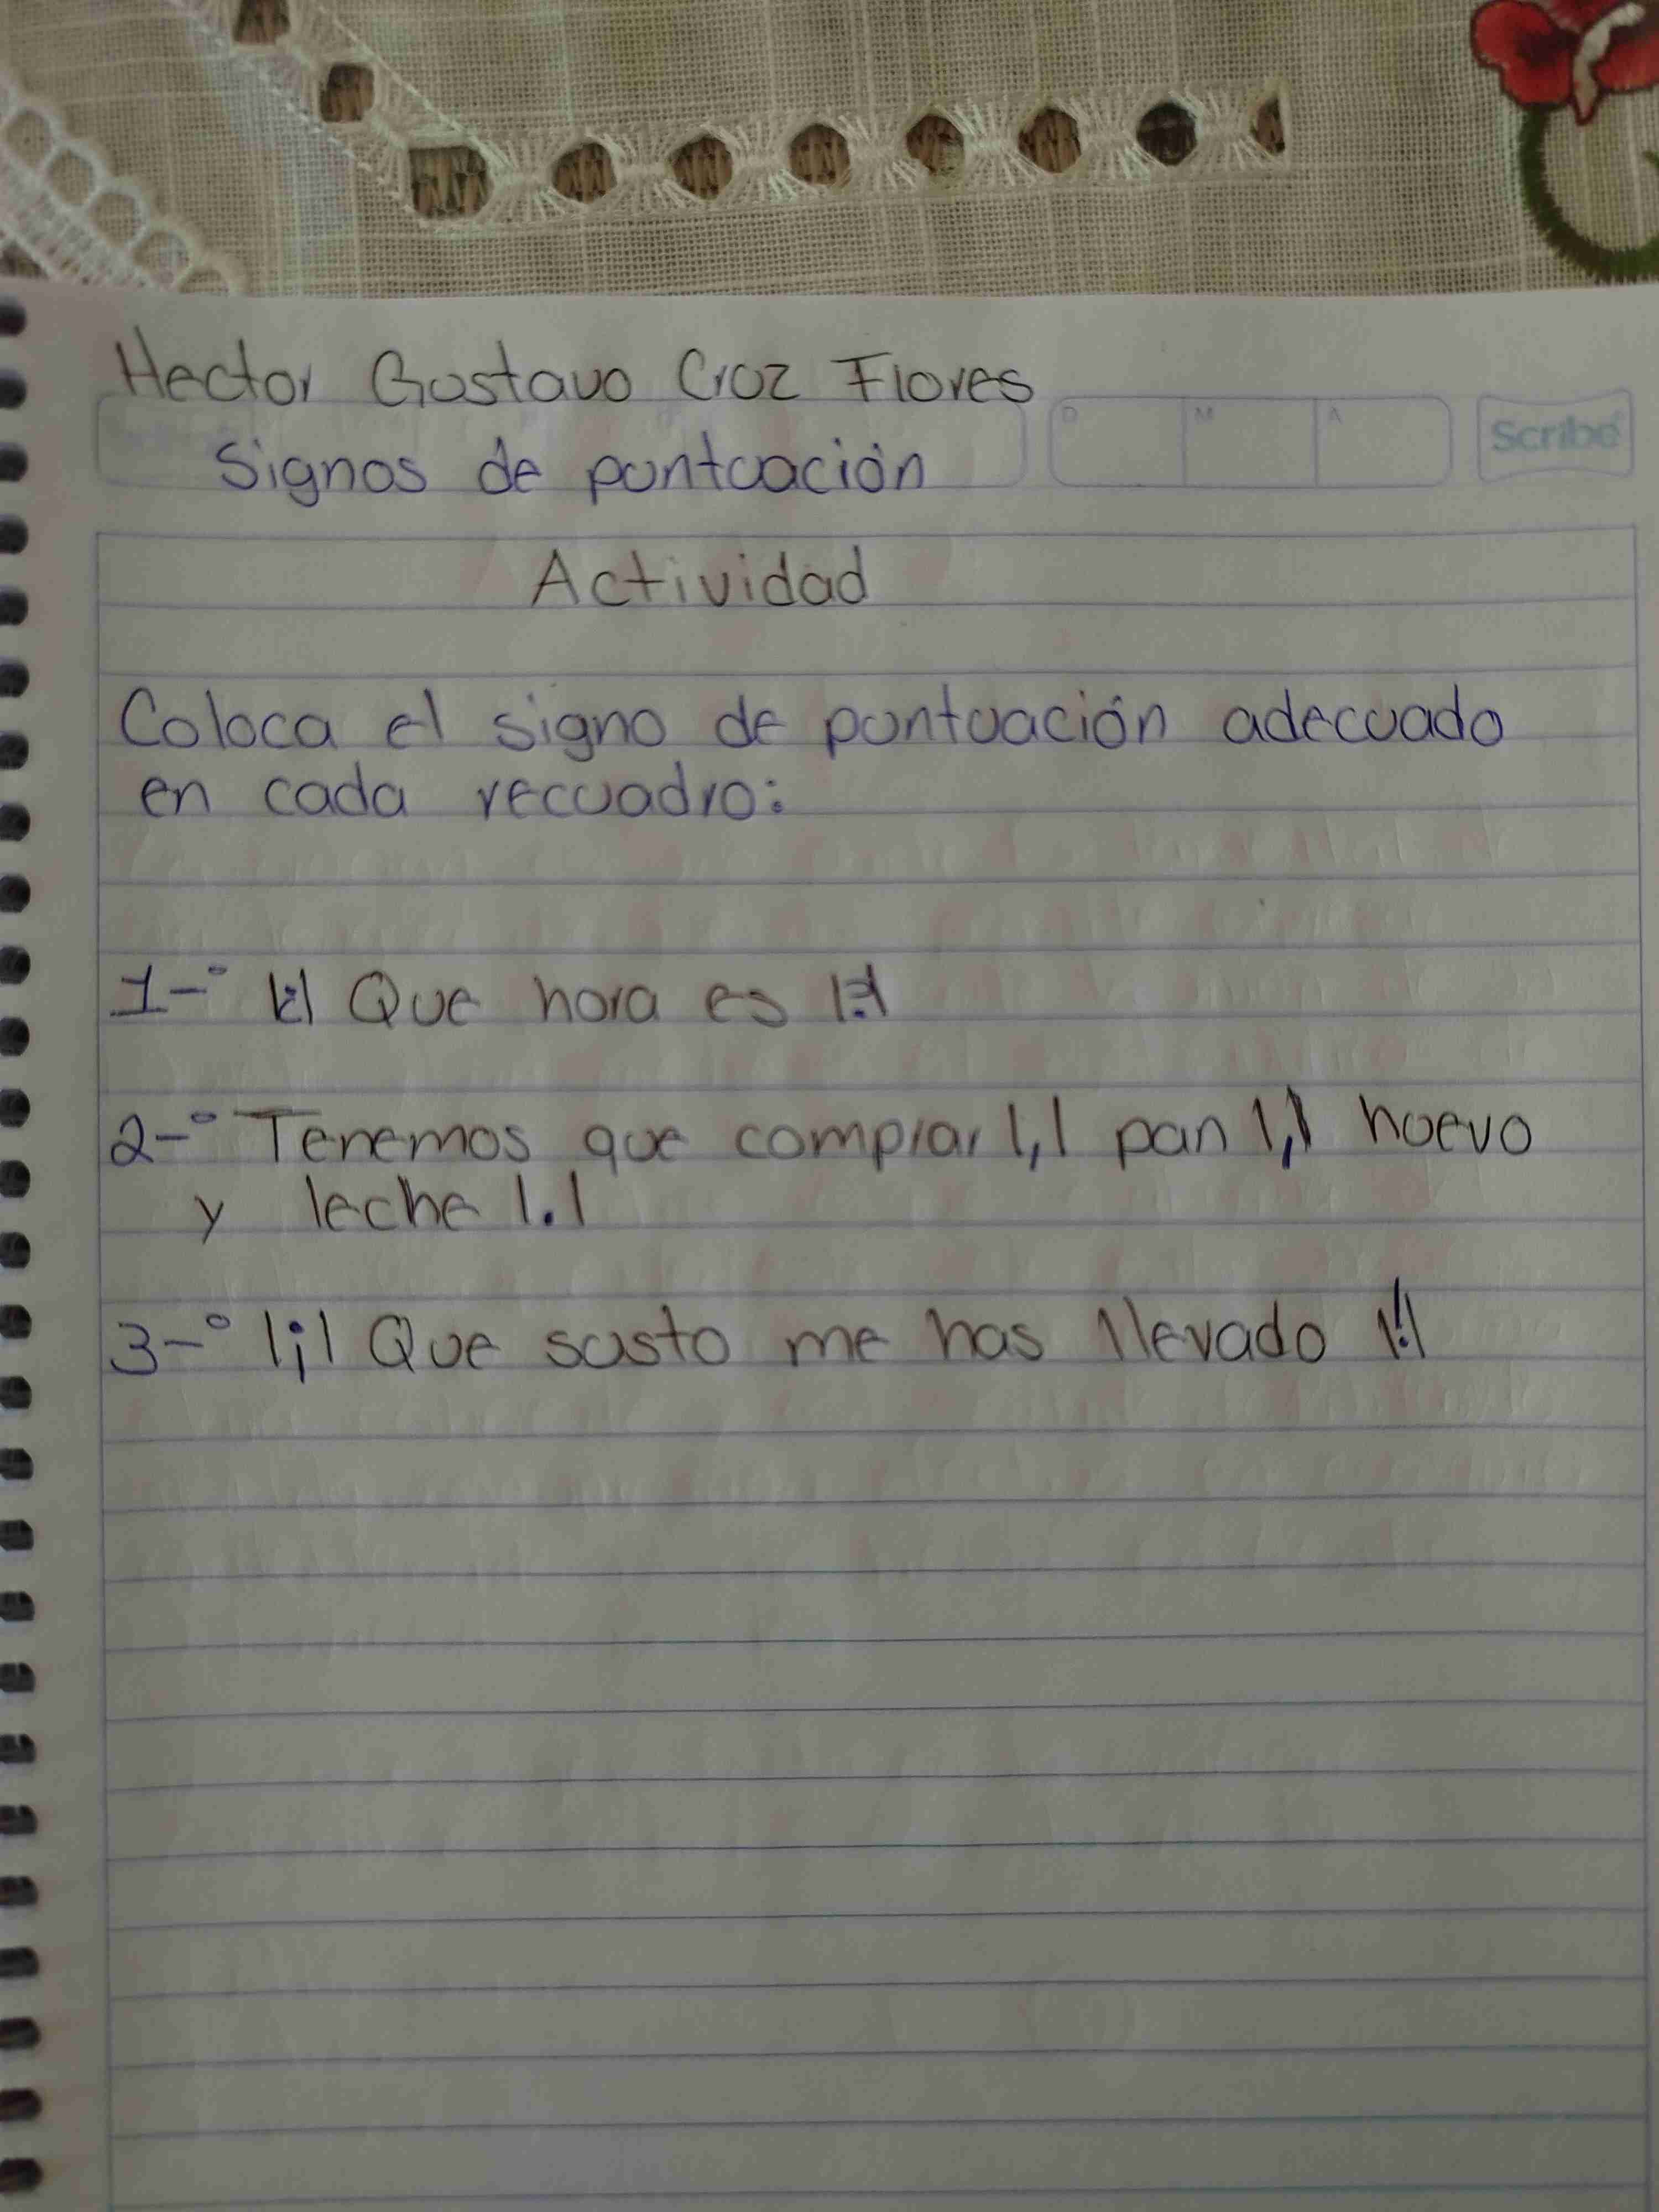 Hector Gustavo Cruz Flores
D M A Scribe
Signos de puntuación
Actividad
Coloca el signo de puntuación adecuado
en cada recuadro:
1-° |¿| Que hora es |?|
2-° Tenemos que comprar |,| pan |,| huevo
y leche |.|
3-° |¡| Que susto me has llevado |!|